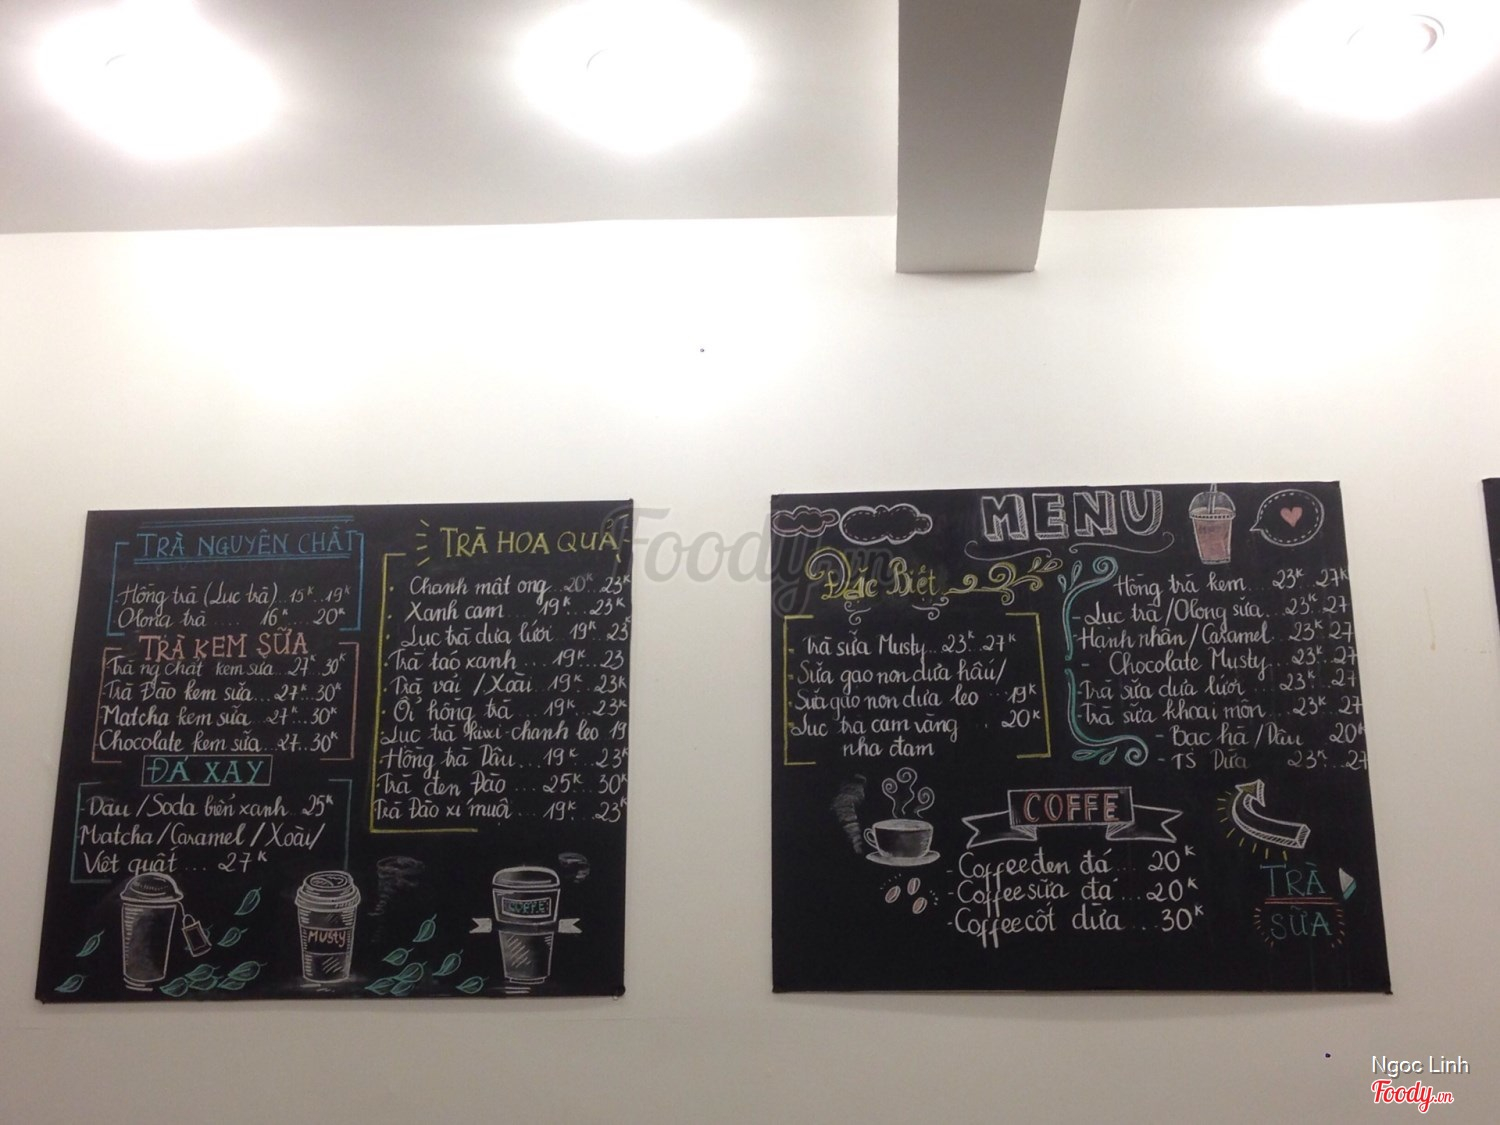 TRÀ NGUYÊN CHẤT
Hồng trà (Lục trà) 15K..19K
Olong trà .... 16K...20K
TRÀ KEM SỮA
Trà ng chất kem sữa..27K.30K
Trà Đào kem sữa...27K..30K
Matcha kem sữa...27K..30K
Chocolate kem sữa...27..30K
ĐÁ XAY
- Dâu / Soda biển xanh 25K
Matcha / Caramel / Xoài /
Việt quất ... 27K
MUSTY
COFFE
TRÀ HOA QUẢ
Chanh mật ong..20K..23K
Xanh cam 19K...23K
Lục trà dưa lưới 19K..23
Trà táo xanh ... 19K...23
Trà vải / Xoài 19K...23K
Ổi hồng trà ... 19K...23K
Lục trà kiwi - chanh leo 19
Hồng trà Dâu...19K...23K
Trà đen Đào ... 25K...30K
Trà Đào xí muội ... 19K...23K
MENU
Đặc Biệt
Trà sữa Musty..23K..27K
Sữa gạo non dưa hấu/
Sữa gạo non dưa leo ... 19K
Lục trà cam vàng .. 20K
nha đam
Hồng trà kem...23K..27K
- Lục trà / Olong sữa..23K.27
Hạnh nhân / Caramel..23K.27
- Chocolate Musty...23K..27
- Trà sữa dưa lưới ..23K..27
Trà sữa khoai môn...23K..27
- Bạc hà / Dâu 20K
- TS Dừa 23K..27
COFFE
- Coffee đen đá ... 20K
- Coffee sữa đá ... 20K
- Coffee cốt dừa ... 30K
TRÀ
SỮA
Foody.vn
Ngoc Linh
Foody.vn